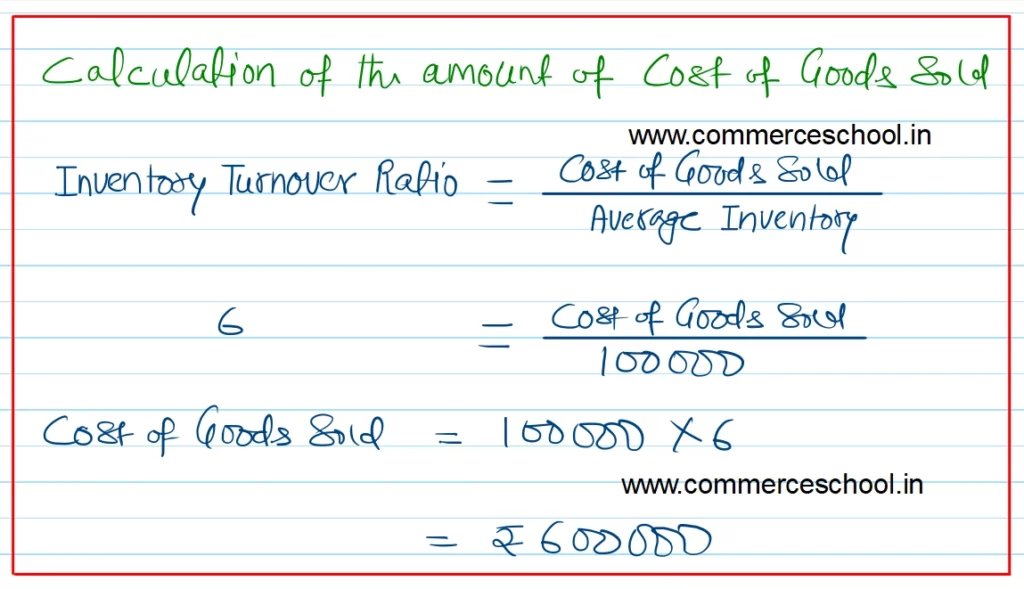 Calculation of the amount of Cost of Goods Sold
www.commerceschool.in
Inventory Turnover Ratio = Cost of Goods Sold
Average Inventory
6 = Cost of Goods Sold
100000
Cost of Goods Sold = 100000 × 6
www.commerceschool.in
= ₹ 600000